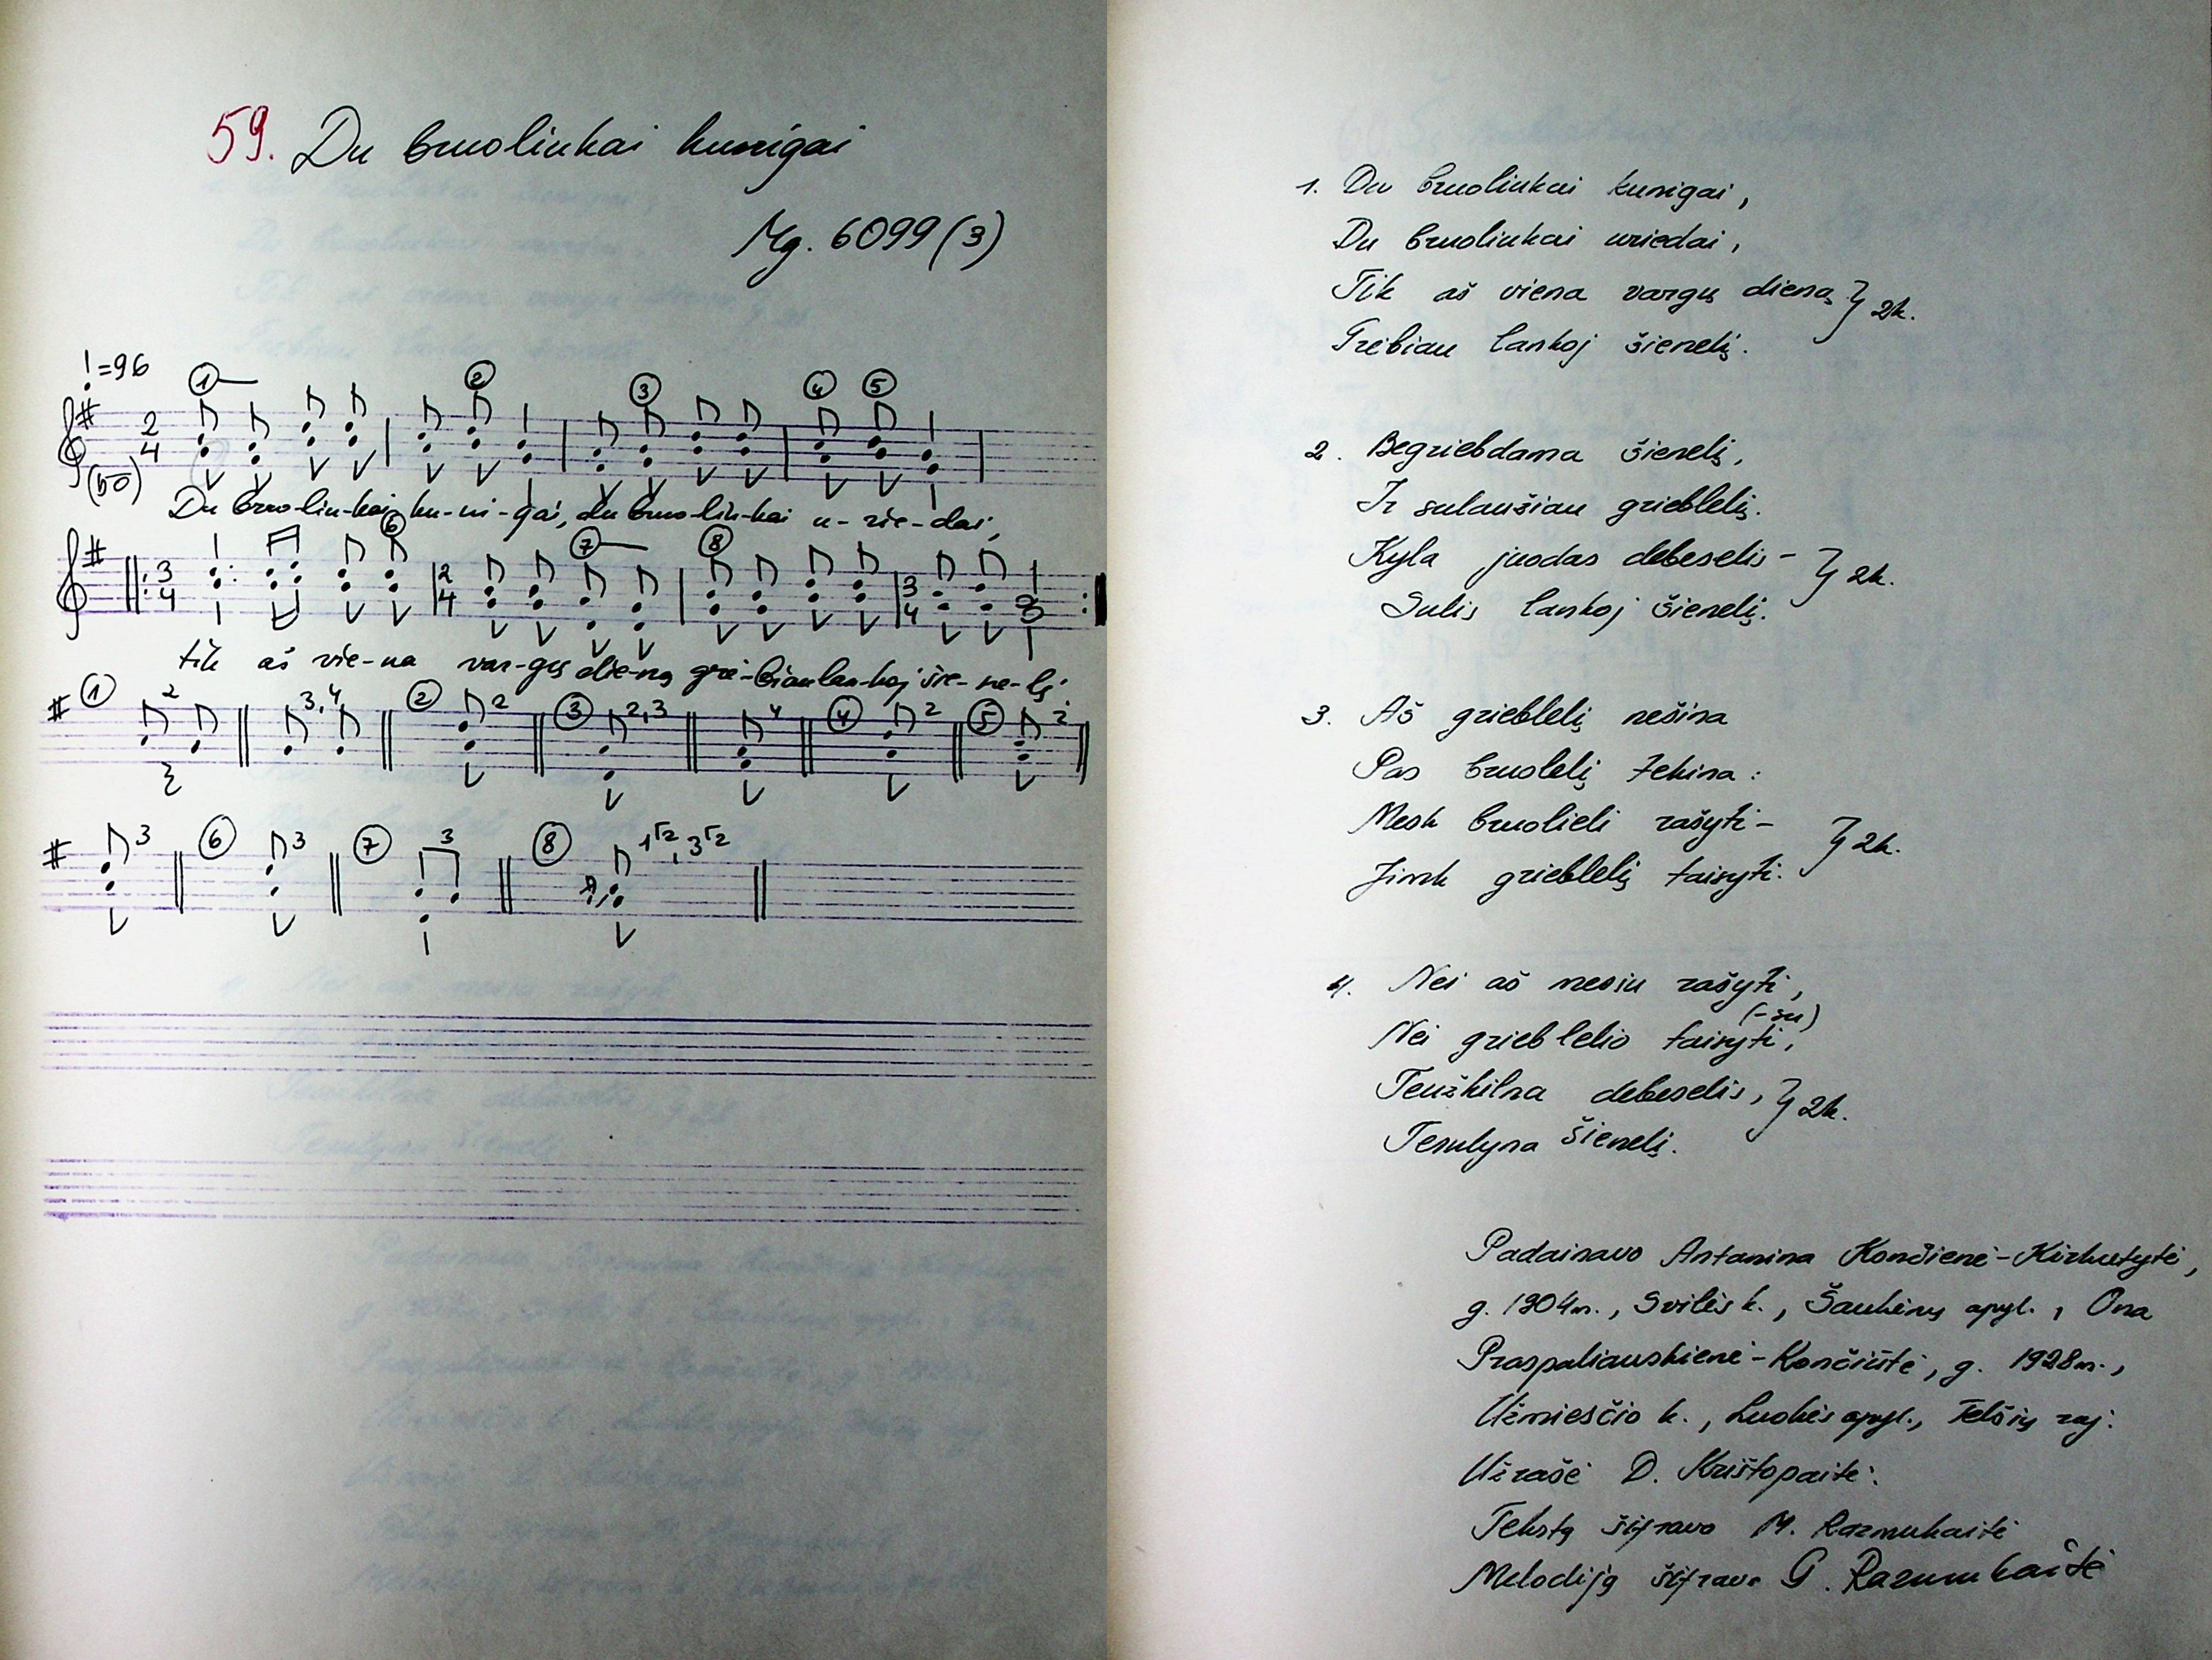 59. Du bruoliukai kunigai
Mg. 6099 (3)
♩=96
Du bruo-liu-kai ku-ni-gai, du bruo-liu-kai u-rie-dai,
tik aš vie-na var-gus die-ną grė-biau lan-koj šie-ne-lį.
1. Du bruoliukai kunigai,
Du bruoliukai uriedai,
Tik aš viena vargų dieną } 2k.
Grėbiau lankoj šienelį.
2. Begriebdama šienelį,
Ir sulaušiau grieblelį.
Kyla juodas debeselis – } 2k.
Sulis lankoj šienelį.
3. Aš grieblelį nešina
Pas bruolelį tekina:
Mesk bruolieli rašyti –
Jimk grieblelį taisyti. } 2k.
4. Nei aš mesiu rašyti,
(-su)
Nei grieblelio taisyti,
Teužkilna debeselis, } 2k.
Tesulyna šienelį.
Padainavo Antanina Končienė-Kirkutytė,
g. 1904m., Svilės k., Šaukėnų apyl., Ona
Praspaliauskienė-Končiūtė, g. 1928m.,
Užmiesčio k., Luokės apyl., Telšių raj.
Užrašė D. Krištopaitė.
Tekstą šifravo M. Razmukaitė
Melodiją šifravo G. Razmukaitė